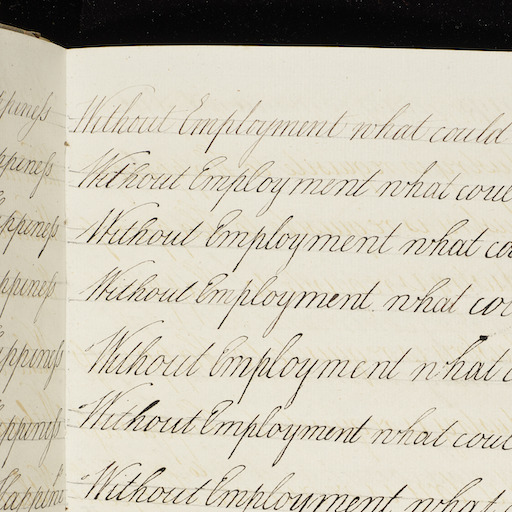 ppineſs
ppineſs
appineſs
ppineſs
appineſs
appineſs
Happine
Without Employment what could
Without Employment what coul
Without Employment what cou
Without Employment what cou
Without Employment what c
Without Employment what coul
Without Employment what c